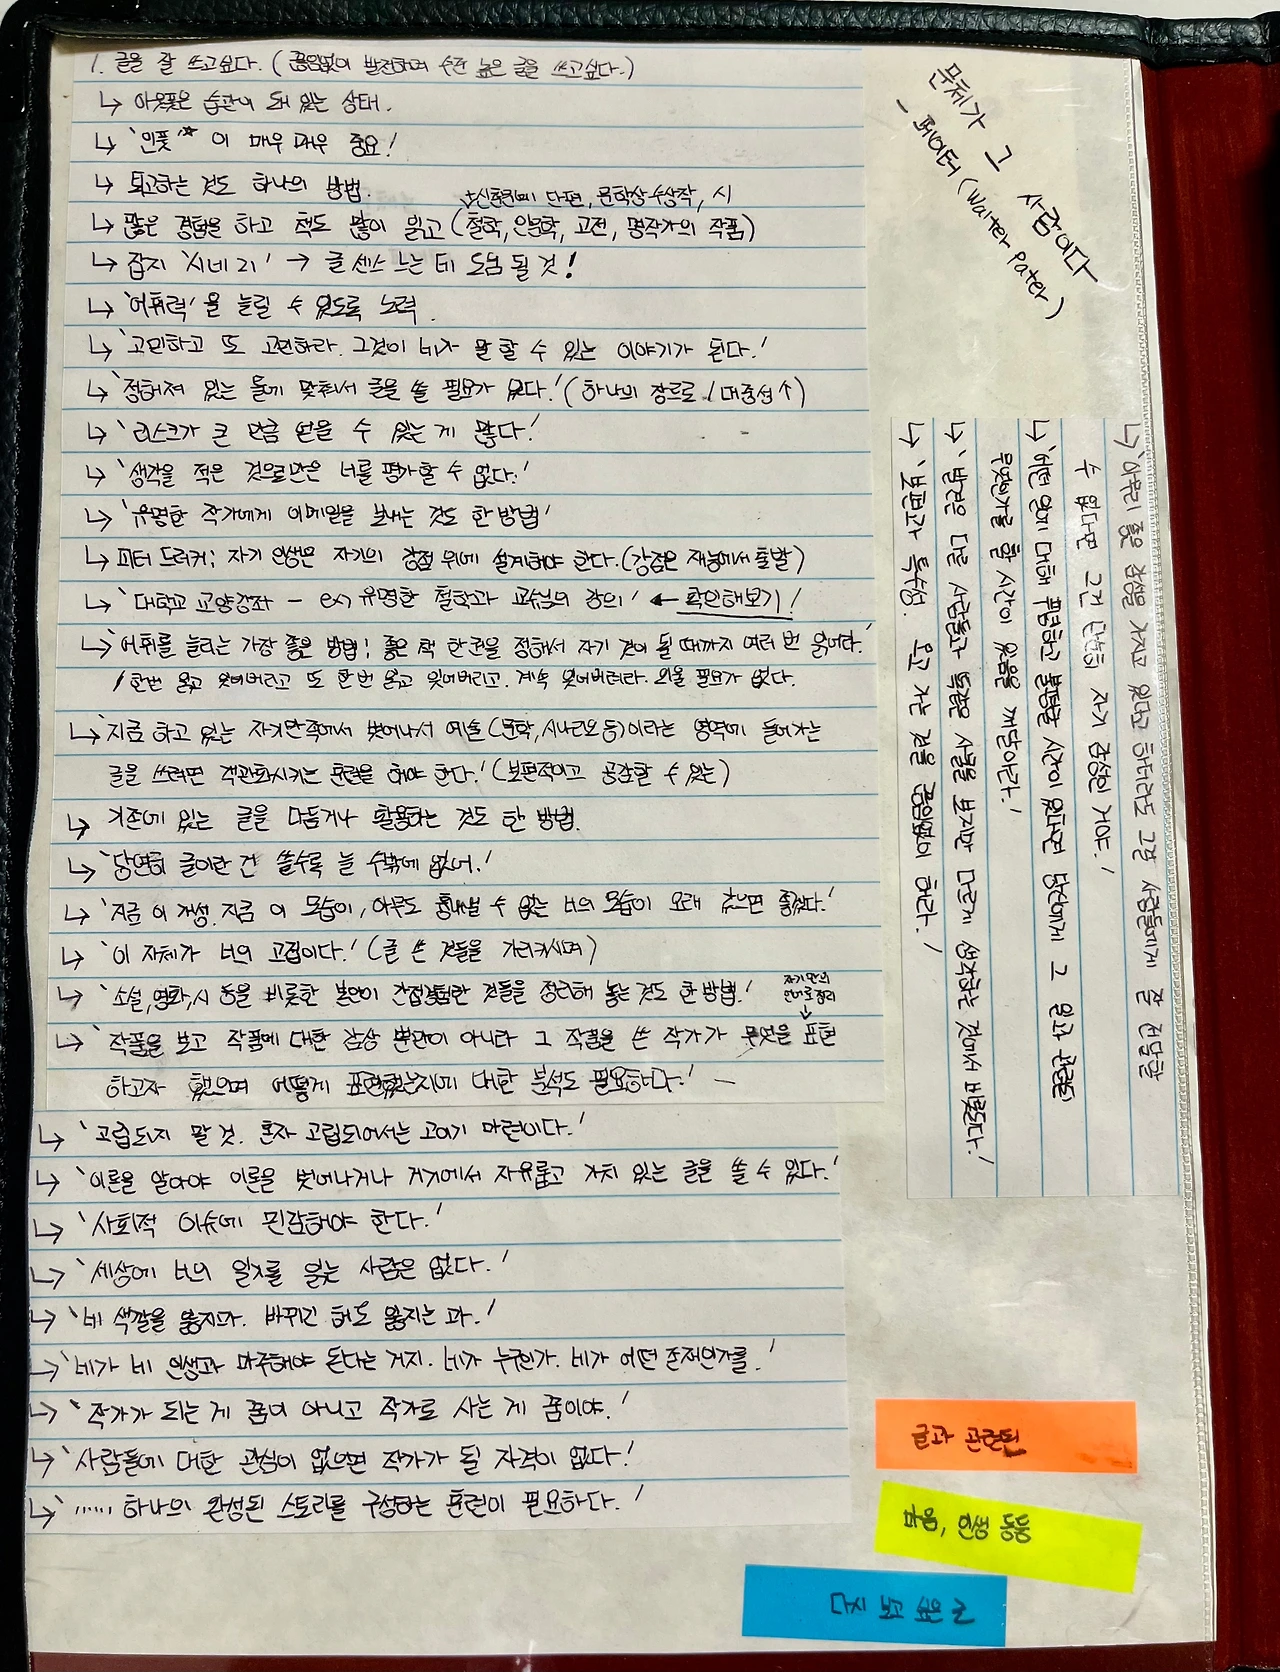 1. 글을 잘 쓰고싶다. (끊임없이 발전하며 수준 높은 글을 쓰고싶다.)
↳ 아웃풋은 습관이 돼 있는 상태.
↳ '인풋'* 이 매우 매우 중요!
↳ 퇴고하는 것도 하나의 방법.
↳신춘문예 단편, 문학상 수상작, 시
↳ 많은 경험을 하고 책도 많이 읽고 (철학, 인문학, 고전, 명작가의 작품)
↳ 잡지 '씨네21' → 글 센스 느는 데 도움 될 것!
↳ '어휘력'을 늘릴 수 있도록 노력.
↳ '고민하고 또 고민하라. 그것이 네가 말 할 수 있는 이야기가 된다.'
↳ '정해져 있는 틀에 맞춰서 글을 쓸 필요가 없다.' (하나의 장르로 / 대중성↑)
↳ '리스크가 큰 만큼 얻을 수 있는 게 많다.'
↳ '생각을 적은 것으로만은 너를 평가할 수 없다.'
↳ '유명한 작가에게 이메일을 보내는 것도 한 방법'
↳ 피터 드러커; 자기 인생은 자기의 강점 위에 설계해야 한다. (강점은 재능에서 출발)
↳ '대학교 교양강좌 - ex) 유명한 철학과 교수님의 강의' ← 확인해보기!
↳ '어휘를 늘리는 가장 좋은 방법; 좋은 책 한권을 정해서 자기 것이 될 때까지 여러 번 읽어라.'
/ 한번 읽고 잊어버리고 또 한번 읽고 잊어버리고. 계속 잊어버려라. 외울 필요가 없다.
↳ '지금 하고 있는 자기만족에서 벗어나서 예술(문학, 시나리오 등)이라는 영역에 들어가는
글을 쓰려면 객관화시키는 훈련을 해야 한다.' (보편적이고 공감할 수 있는)
↳ 기존에 있는 글을 다듬거나 활용하는 것도 한 방법.
↳ '당연히 글이란 건 쓸수록 늘 수밖에 없어.'
↳ '지금 이 개성. 지금 이 모습이, 아무도 흉내낼 수 없는 너의 모습이 오래 갔으면 좋겠다.'
↳ '이 자체가 너의 고집이다.' (글 쓴 것들을 가리키시며)
↳ '소설, 영화, 시 등을 비롯한 본인이 간접경험한 것들을 정리해 놓는 것도 한 방법.'
자기만의
언어로 정리
↓
↳ '작품을 보고 작품에 대한 감상 뿐만이 아니라 그 작품을 쓴 작가가 무엇을 표현
하고자 했으며 어떻게 표현했는지에 대한 분석도 필요하다.' -
↳ '고립되지 말 것. 혼자 고립되어서는 고이기 마련이다.'
↳ '이론을 알아야 이론을 벗어나거나 거기에서 자유롭고 가치 있는 글을 쓸 수 있다.'
↳ '사회적 이슈에 민감해야 한다.'
↳ '세상에 너의 일기를 읽는 사람은 없다.'
↳ '네 색깔을 잃지마. 바뀌긴 해도 잃지는 마.'
↳ '네가 네 인생과 마주해야 된다는 거지. 네가 누구인가. 네가 어떤 존재인가를.'
↳ '작가가 되는 게 꿈이 아니고 작가로 사는 게 꿈이야.'
↳ '사람들에 대한 관심이 없으면 작가가 될 자격이 없다.'
↳ '...... 하나의 완성된 스토리를 구성하는 훈련이 필요하다.'
문체가 그 사람이다
- 페이터 (Walter Pater)
↳ '아무리 좋은 감성을 가지고 있다고 하더라도 그걸 사람들에게 잘 전달할
수 없다면 그건 단순히 자기 감성인 거야.'
↳ '어떤 일에 대해 푸념하고 불평할 시간이 있다면 당신에게 그 일과 관련된
무엇인가를 할 시간이 있음을 깨달아라.'
↳ '발견은 다른 사람들과 똑같은 사물을 보지만 다르게 생각하는 것에서 비롯된다.'
↳ '보편과 특수성. 오고 가는 것을 끊임없이 해라.'
글과 관련된
마음, 인생 등등
다시 보고 싶은 글